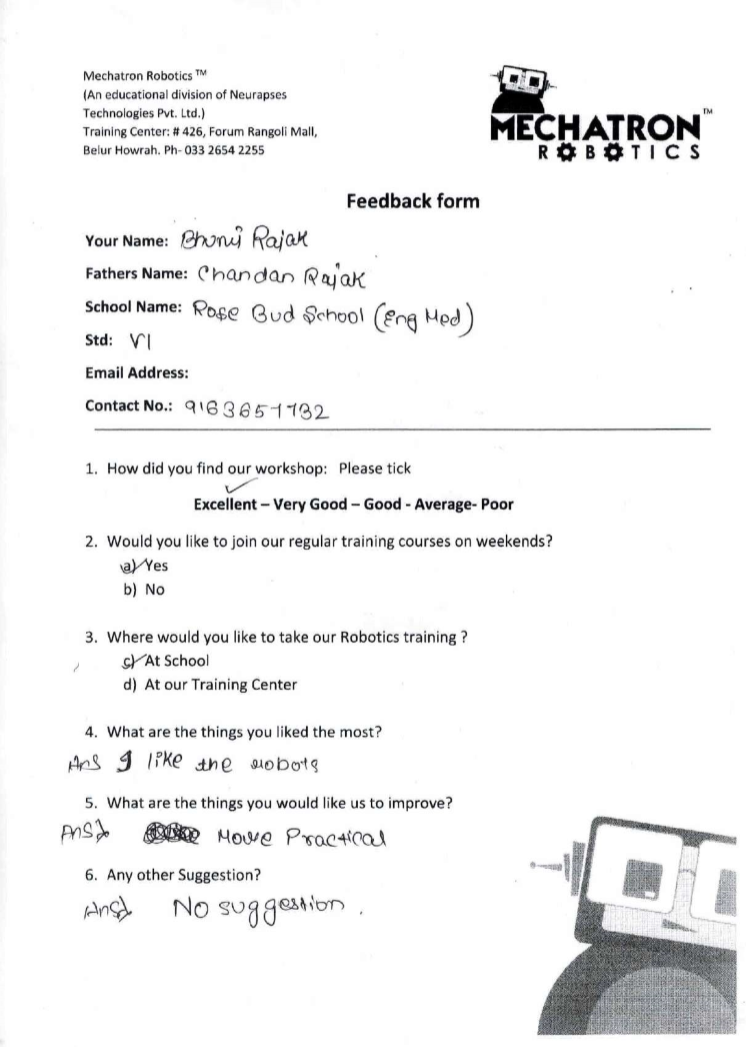 Mechatron Robotics ™
(An educational division of Neurapses
Technologies Pvt. Ltd.)
Training Center: # 426, Forum Rangoli Mall,
Belur Howrah. Ph- 033 2654 2255
MECHATRON™
ROBOTICS
Feedback form
Your Name: Rajak
Fathers Name: Chandan Rajak
School Name: Rose Bud School (Eng Med)
Std: VI
Email Address:
Contact No.:
1. How did you find our workshop: Please tick
Excellent – Very Good – Good - Average- Poor
2. Would you like to join our regular training courses on weekends?
a) Yes
b) No
3. Where would you like to take our Robotics training ?
c) At School
d) At our Training Center
4. What are the things you liked the most?
Ans I like the robots
5. What are the things you would like us to improve?
Ans) More Practical
6. Any other Suggestion?
Ans) No suggestion.